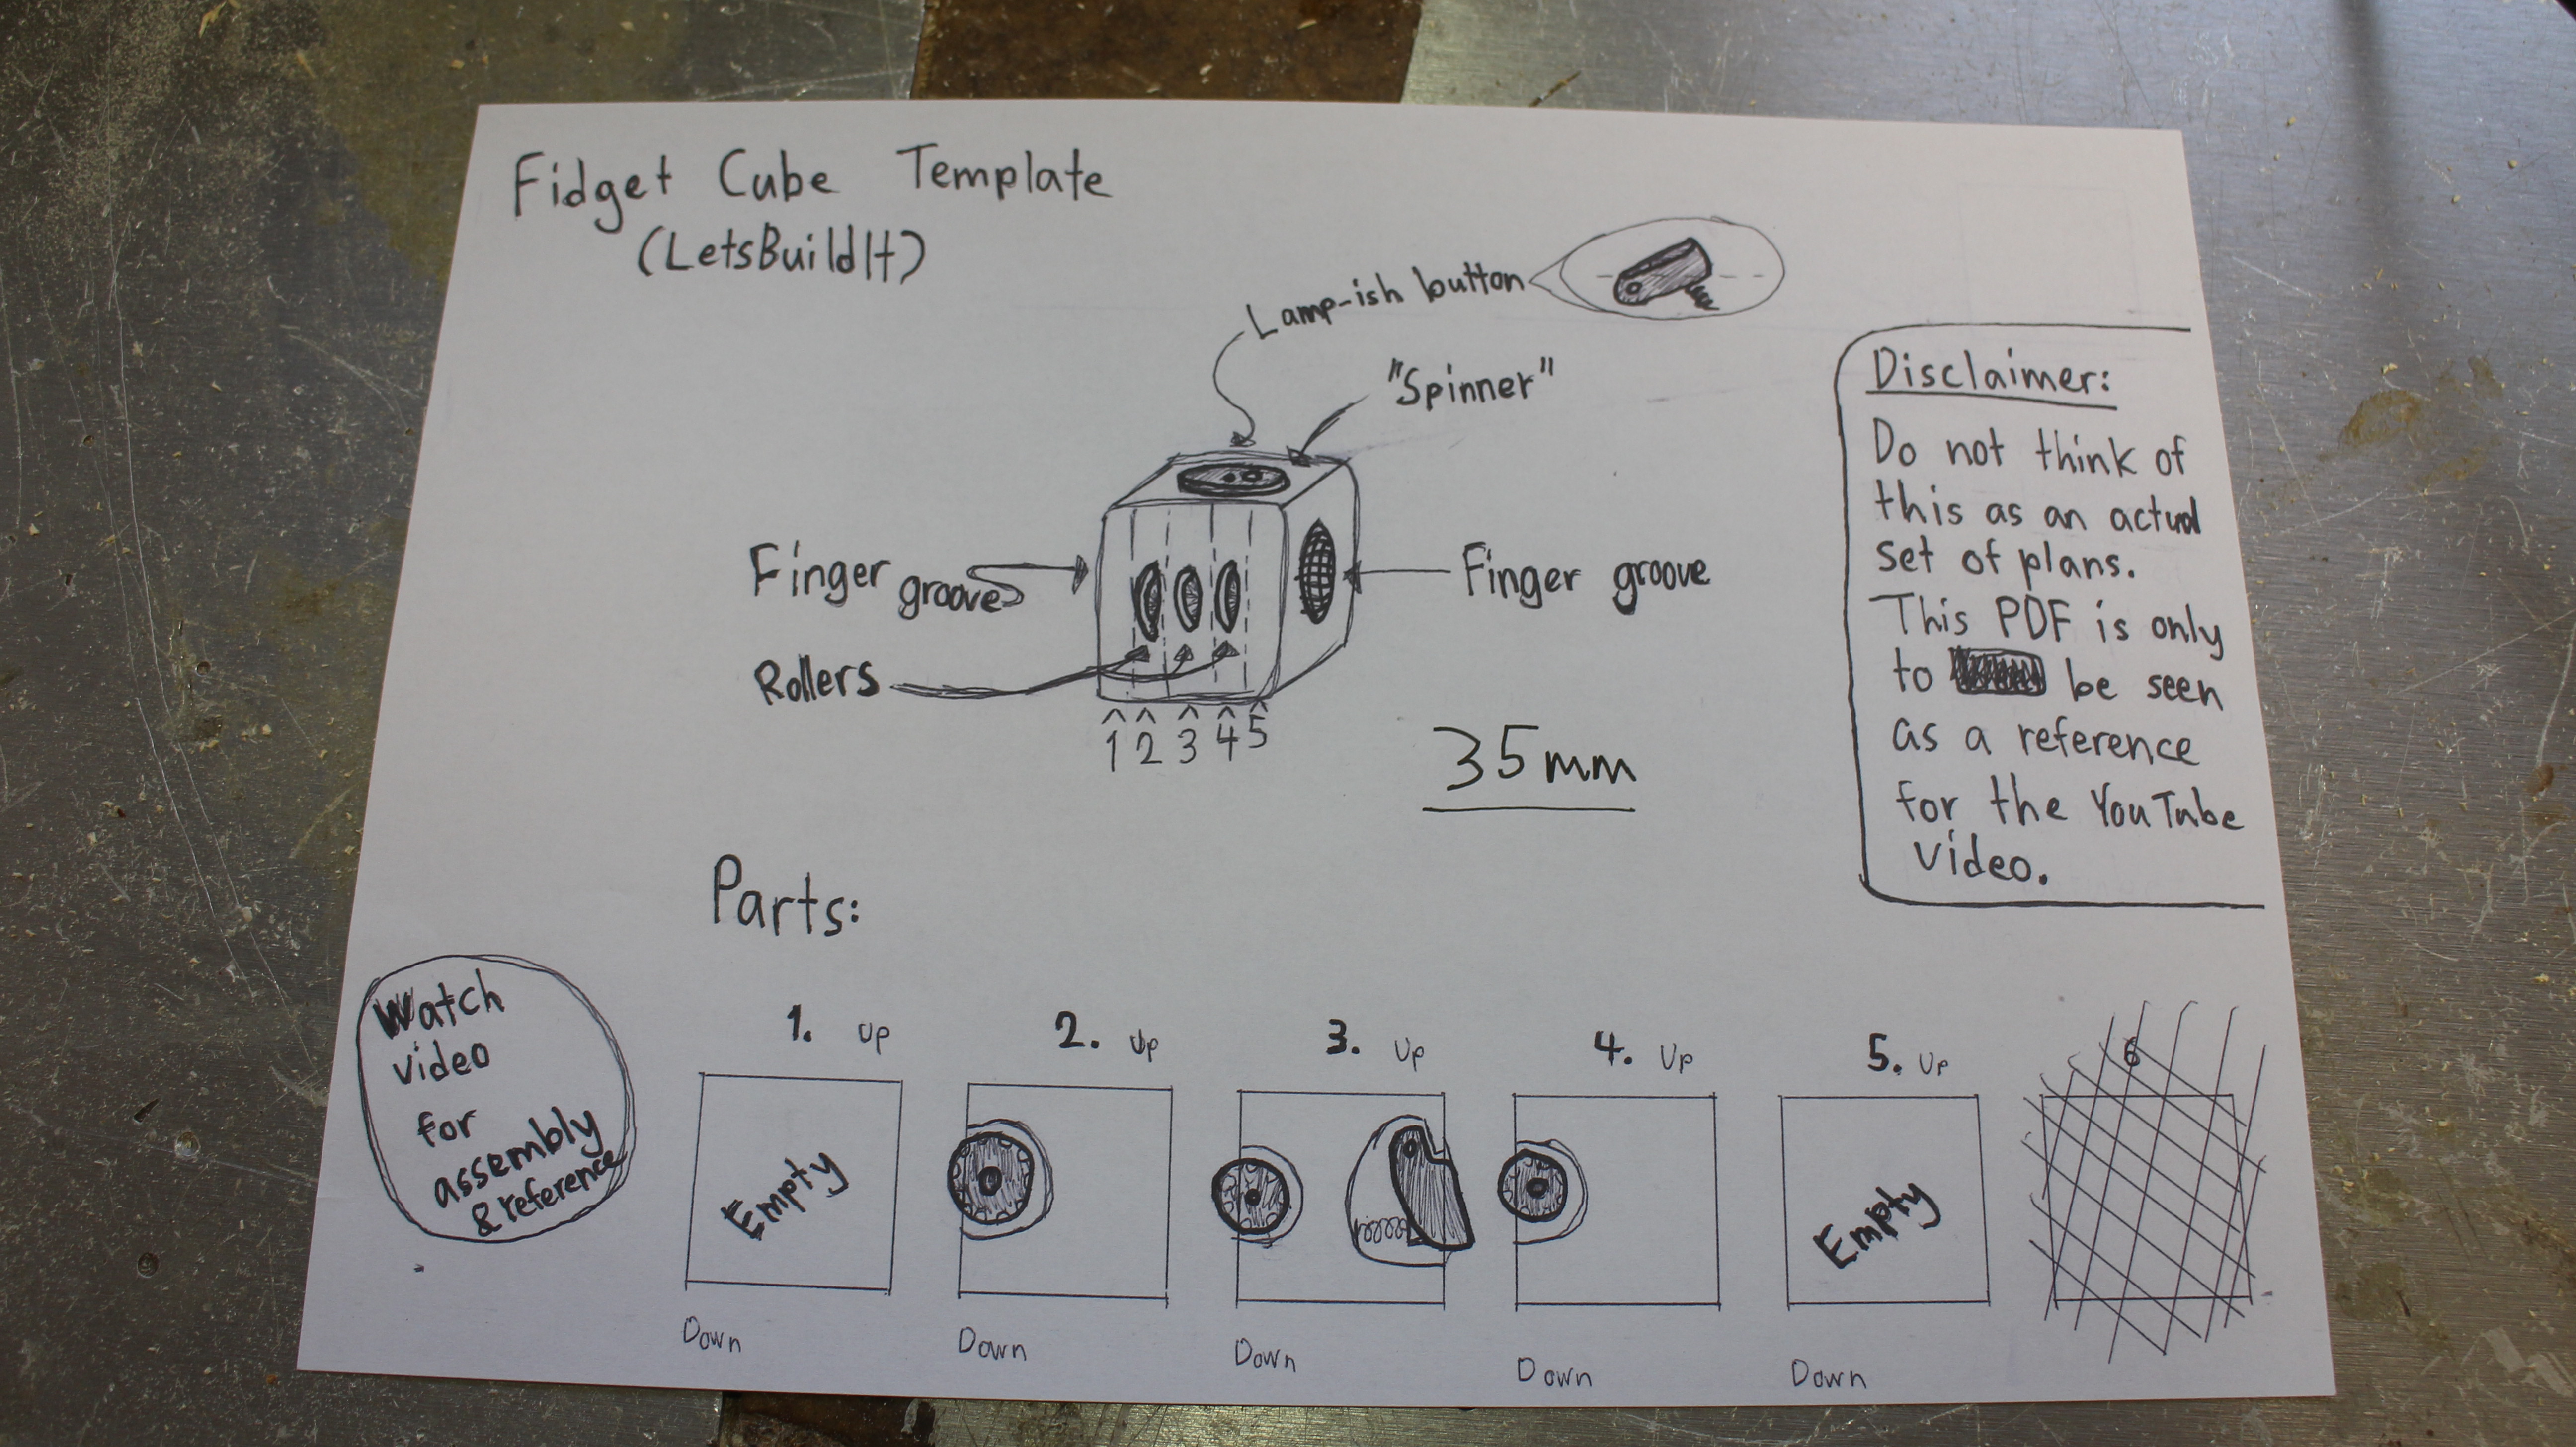 Fidget Cube Template
(LetsBuildIt)
Lamp-ish button
"Spinner"
Finger groove
Finger groove
Rollers
1 2 3 4 5
35mm
Disclaimer:
Do not think of
this as an actual
set of plans.
This PDF is only
to be seen
as a reference
for the YouTube
video.
Parts:
Watch
video
for
assembly
& reference
1. Up
2. Up
3. Up
4. Up
5. Up
6
Empty
Empty
Down
Down
Down
Down
Down